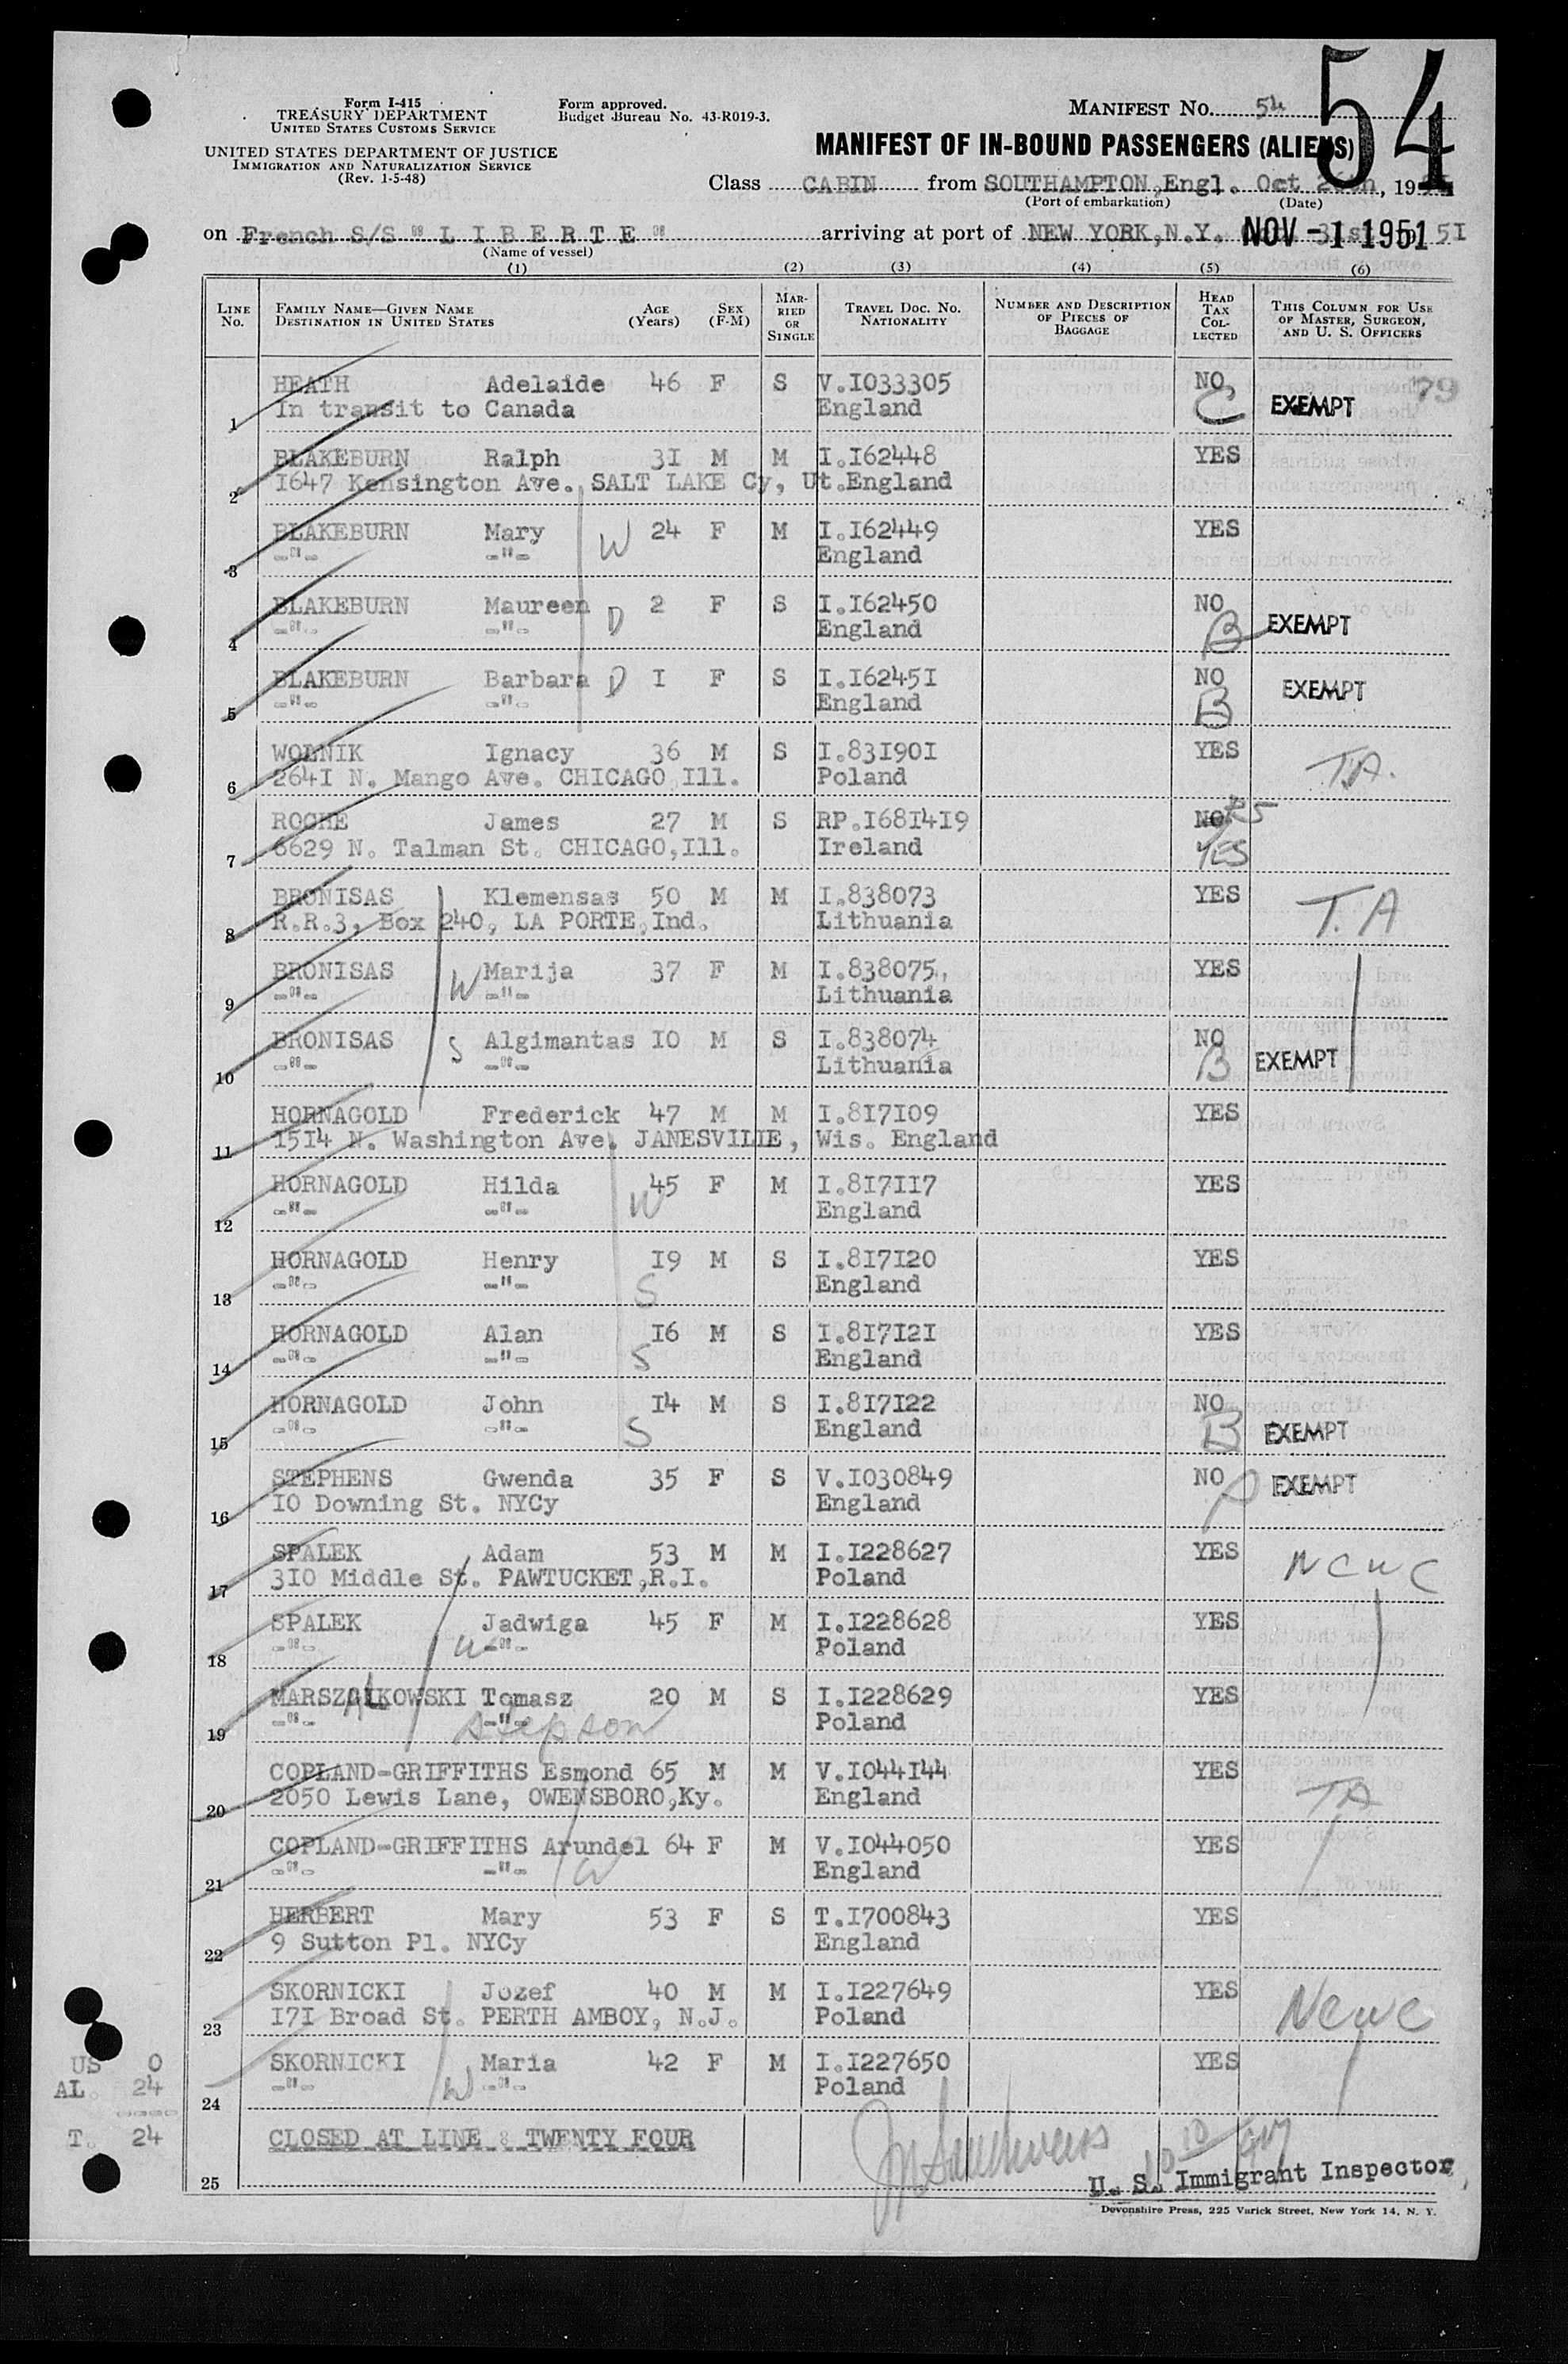 Form I-415
TREASURY DEPARTMENT
UNITED STATES CUSTOMS SERVICE
UNITED STATES DEPARTMENT OF JUSTICE
IMMIGRATION AND NATURALIZATION SERVICE
(Rev. 1-5-48)
Form approved.
Budget Bureau No. 43-R019-3.
MANIFEST No. 54
54
MANIFEST OF IN-BOUND PASSENGERS (ALIENS)
Class CABIN from SOUTHAMPTON,Engl. Oct 26th, 19
(Port of embarkation) (Date)
on French S/S " L I B E R T E " arriving at port of NEW YORK,N.Y. NOV -1 1951 31st 51
(Name of vessel)
(1) (2) (3) (4) (5) (6)
LINE No. FAMILY NAME—GIVEN NAME DESTINATION IN UNITED STATES AGE (Years) SEX (F-M) MARRIED OR SINGLE TRAVEL DOC. NO. NATIONALITY NUMBER AND DESCRIPTION OF PIECES OF BAGGAGE HEAD TAX COLLECTED THIS COLUMN FOR USE OF MASTER, SURGEON, AND U. S. OFFICERS
HEATH Adelaide 46 F S V.I033305 NO 79
1 In transit to Canada England C EXEMPT
BLAKEBURN Ralph 3I M M I.I62448 YES
2 I647 Kensington Ave. SALT LAKE Cy, Ut.England
BLAKEBURN Mary W 24 F M I.I62449 YES
3 -"- -"- England
BLAKEBURN Maureen D 2 F S I.I62450 NO
4 -"- -"- England B EXEMPT
BLAKEBURN Barbara D I F S I.I6245I NO
5 -"- -"- England B EXEMPT
WOLNIK Ignacy 36 M S I.83I90I YES
6 264I N. Mango Ave. CHICAGO,Ill. Poland T.A.
ROCHE James 27 M S RP.I68I4I9 NO
7 6629 N. Talman St. CHICAGO,Ill. Ireland YES
BRONISAS Klemensas 50 M M I.838073 YES
8 R.R.3, Box 240, LA PORTE,Ind. Lithuania T.A
BRONISAS W Marija 37 F M I.838075, YES
9 -"- -"- Lithuania
BRONISAS S Algimantas IO M S I.838074 NO
10 -"- -"- Lithuania B EXEMPT
HORNAGOLD Frederick 47 M M I.8I7I09 YES
11 I5I4 N. Washington Ave. JANESVILIE, Wis. England
HORNAGOLD Hilda 45 F M I.8I7II7 YES
12 -"- -"- W England
HORNAGOLD Henry I9 M S I.8I7I20 YES
13 -"- -"- S England
HORNAGOLD Alan I6 M S I.8I7I2I YES
14 -"- -"- S England
HORNAGOLD John I4 M S I.8I7I22 NO
15 -"- -"- S England B EXEMPT
STEPHENS Gwenda 35 F S V.I030849 NO EXEMPT
16 IO Downing St. NYCy England
SPALEK Adam 53 M M I.I228627 YES
17 3IO Middle St. PAWTUCKET,R.I. Poland NCWC
SPALEK Jadwiga 45 F M I.I228628 YES
18 -"- W -"- Poland
MARSZALKOWSKI Tomasz 20 M S I.I228629 YES
AL
19 -"- -"- stepson Poland
COPLAND-GRIFFITHS Esmond 65 M M V.I044I44 YES
20 2050 Lewis Lane, OWENSBORO,Ky. England TA
COPLAND-GRIFFITHS Arundel 64 F M V.I044050 YES
21 -"- -"- W England
HERBERT Mary 53 F S T.I700843 YES
22 9 Sutton Pl. NYCy England
SKORNICKI Jozef 40 M M I.I227649 YES
23 I7I Broad St. PERTH AMBOY, N.J. Poland NCWC
SKORNICKI Maria 42 F M I.I227650 YES
24 -"- W -"- Poland
US 0
AL. 24
T. 24
CLOSED AT LINE : TWENTY FOUR
25 U. S. Immigrant Inspector
Devonshire Press, 225 Varick Street, New York 14, N. Y.